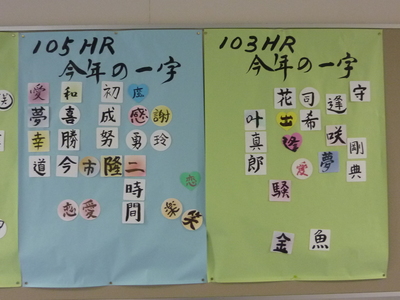 105HR
今年の一字
愛 和 初 座
夢 喜 成 感 謝
幸 勝 努 勇 玲
道 今 市 隆 二
時
恋
間
恋 愛 楽 笑
103HR
今年の一字
花 司 逢 守
叶 出 希
真 咲 剛
郎 愛 夢 典
騒
金 魚